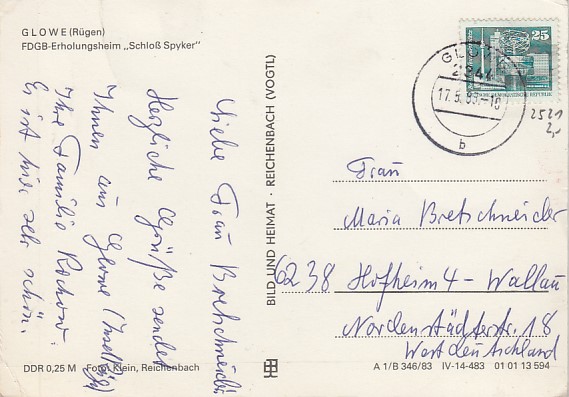 GLOWE (Rügen)
FDGB-Erholungsheim „Schloß Spyker"
Liebe Frau Bretschneider
Herzliche Grüße sendet
Ihnen aus Glowe (Insel Rüg.)
Ihre Familie Rochow.
Es ist hier sehr schön.
BILD UND HEIMAT · REICHENBACH (VOGTL)
25
GLOWE
2344
17.5.83.-16
b
2521
2,-
Frau
Maria Bretschneider
6238 Hofheim 4 - Wallau
Nordenstädterstr. 18
Westdeutschland
DDR 0,25 M Foto: Klein, Reichenbach
A 1/B 346/83 IV-14-483 01 01 13 594